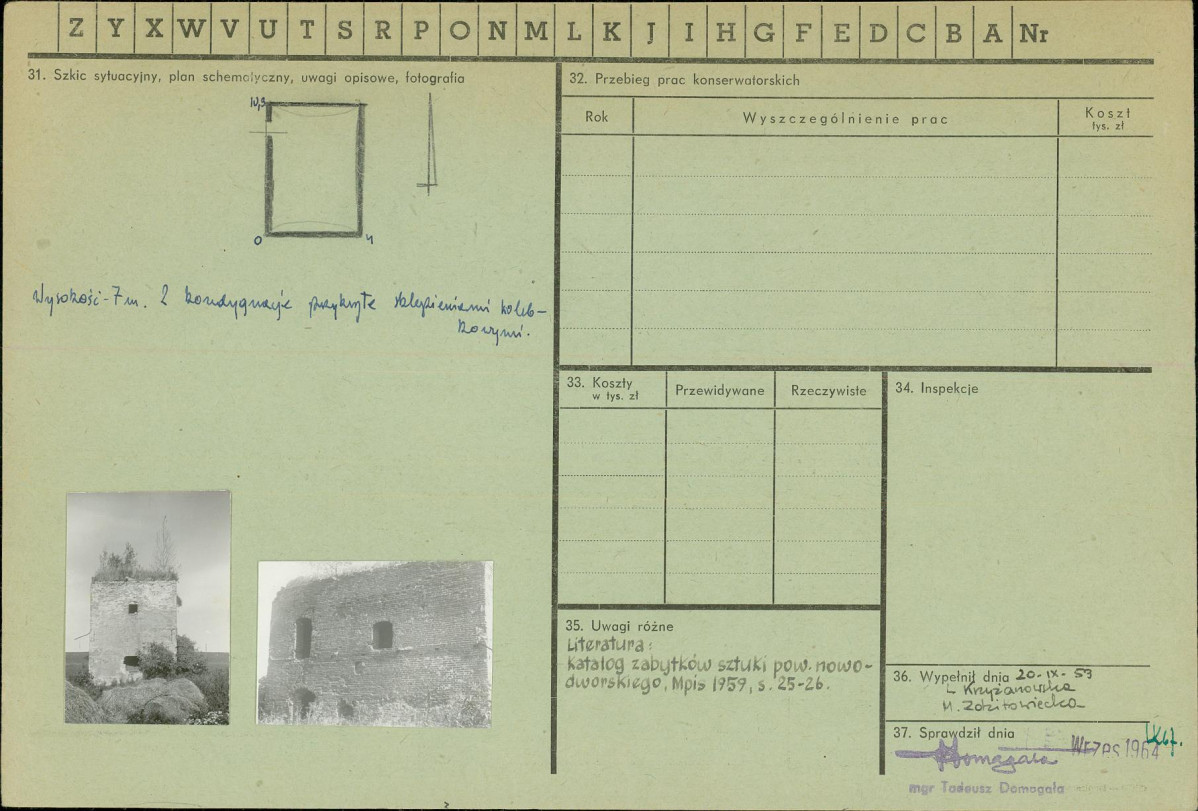 Z Y X W V U T S R P O N M L K J I H G F E D C B A Nr
31. Szkic sytuacyjny, plan schematyczny, uwagi opisowe, fotografia
10,3
0 4
Wysokość - 7 m. 2 kondygnacje przykryte sklepieniami koleb-
kowymi.
32. Przebieg prac konserwatorskich
Rok Wyszczególnienie prac Koszt
tys. zł
33. Koszty Przewidywane Rzeczywiste
w tys. zł
34. Inspekcje
35. Uwagi różne
Literatura:
Katalog zabytków sztuki pow. nowo-
dworskiego, Mpis 1959, s. 25-26.
36. Wypełnił dnia 20-IX-59
L Krzyżanowska
M. Zdzitowiecka
37. Sprawdził dnia
Wrzes 1964
IX 67.
Domagała
mgr Tadeusz Domagała